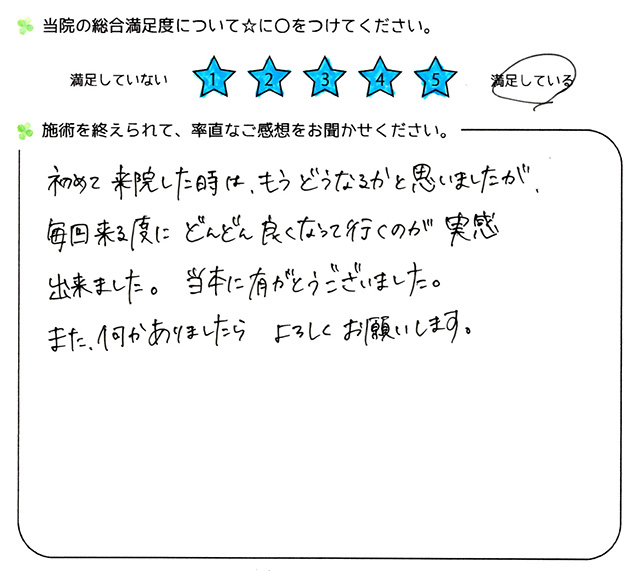 当院の総合満足度について☆に〇をつけてください。
満足していない 1 2 3 4 5 満足している
施術を終えられて、率直なご感想をお聞かせください。
初めて来院した時は、もうどうなるかと思いましたが、
毎回来る度に どんどん良くなって行くのが 実感
出来ました。 当本に有がとうございました。
また、何かありましたら よろしくお願いします。